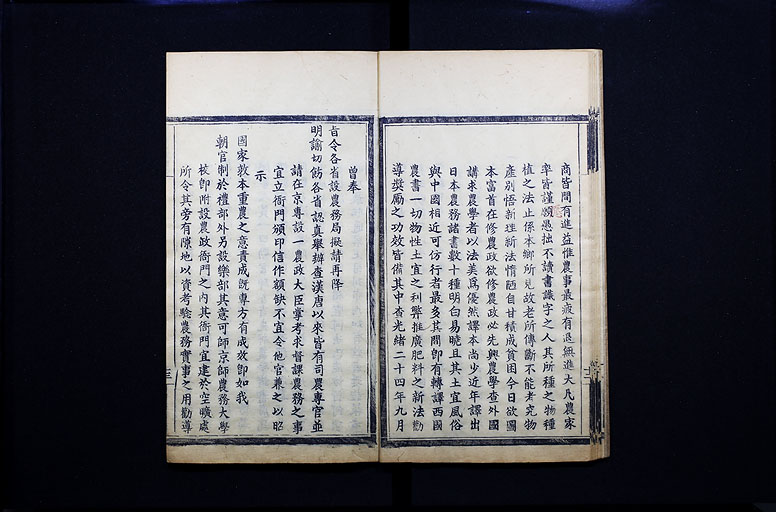 商皆間有進益惟農事最疲有退無進大凡農家
率皆謹願愚拙不讀書識字之人其所種之物種
植之法止係本鄉所見故老所傳斷不能考究物
產別悟新理新法惰陋自甘積成貧困今日欲圖
本富首在修農政欲修農政必先興農學查外國
講求農學者以法美爲優然譯本尚少近年譯出
日本農務諸書數十種明白易曉且其土宜風俗
與中國相近可仿行者最多其間即有轉譯西國
農書一切物性土宜之利弊推廣肥料之新法勸
導獎厲之功效皆備其中查光緒二十四年九月
曾奉
旨令各省設農務局擬請再降
明諭切飭各省認真舉辦查漢唐以來皆有司農專官並
請在京專設一農政大臣掌考求督課農務之事
宜立衙門頒印信作額缺不宜令他官兼之以昭
示
國家敦本重農之意責成既專方有成效即如我
朝官制於禮部外另設樂部其意可師京師農務大學
校即附設農政衙門之內其衙門宜建於空曠處
所令其旁有隙地以資考驗農務實事之用勸導